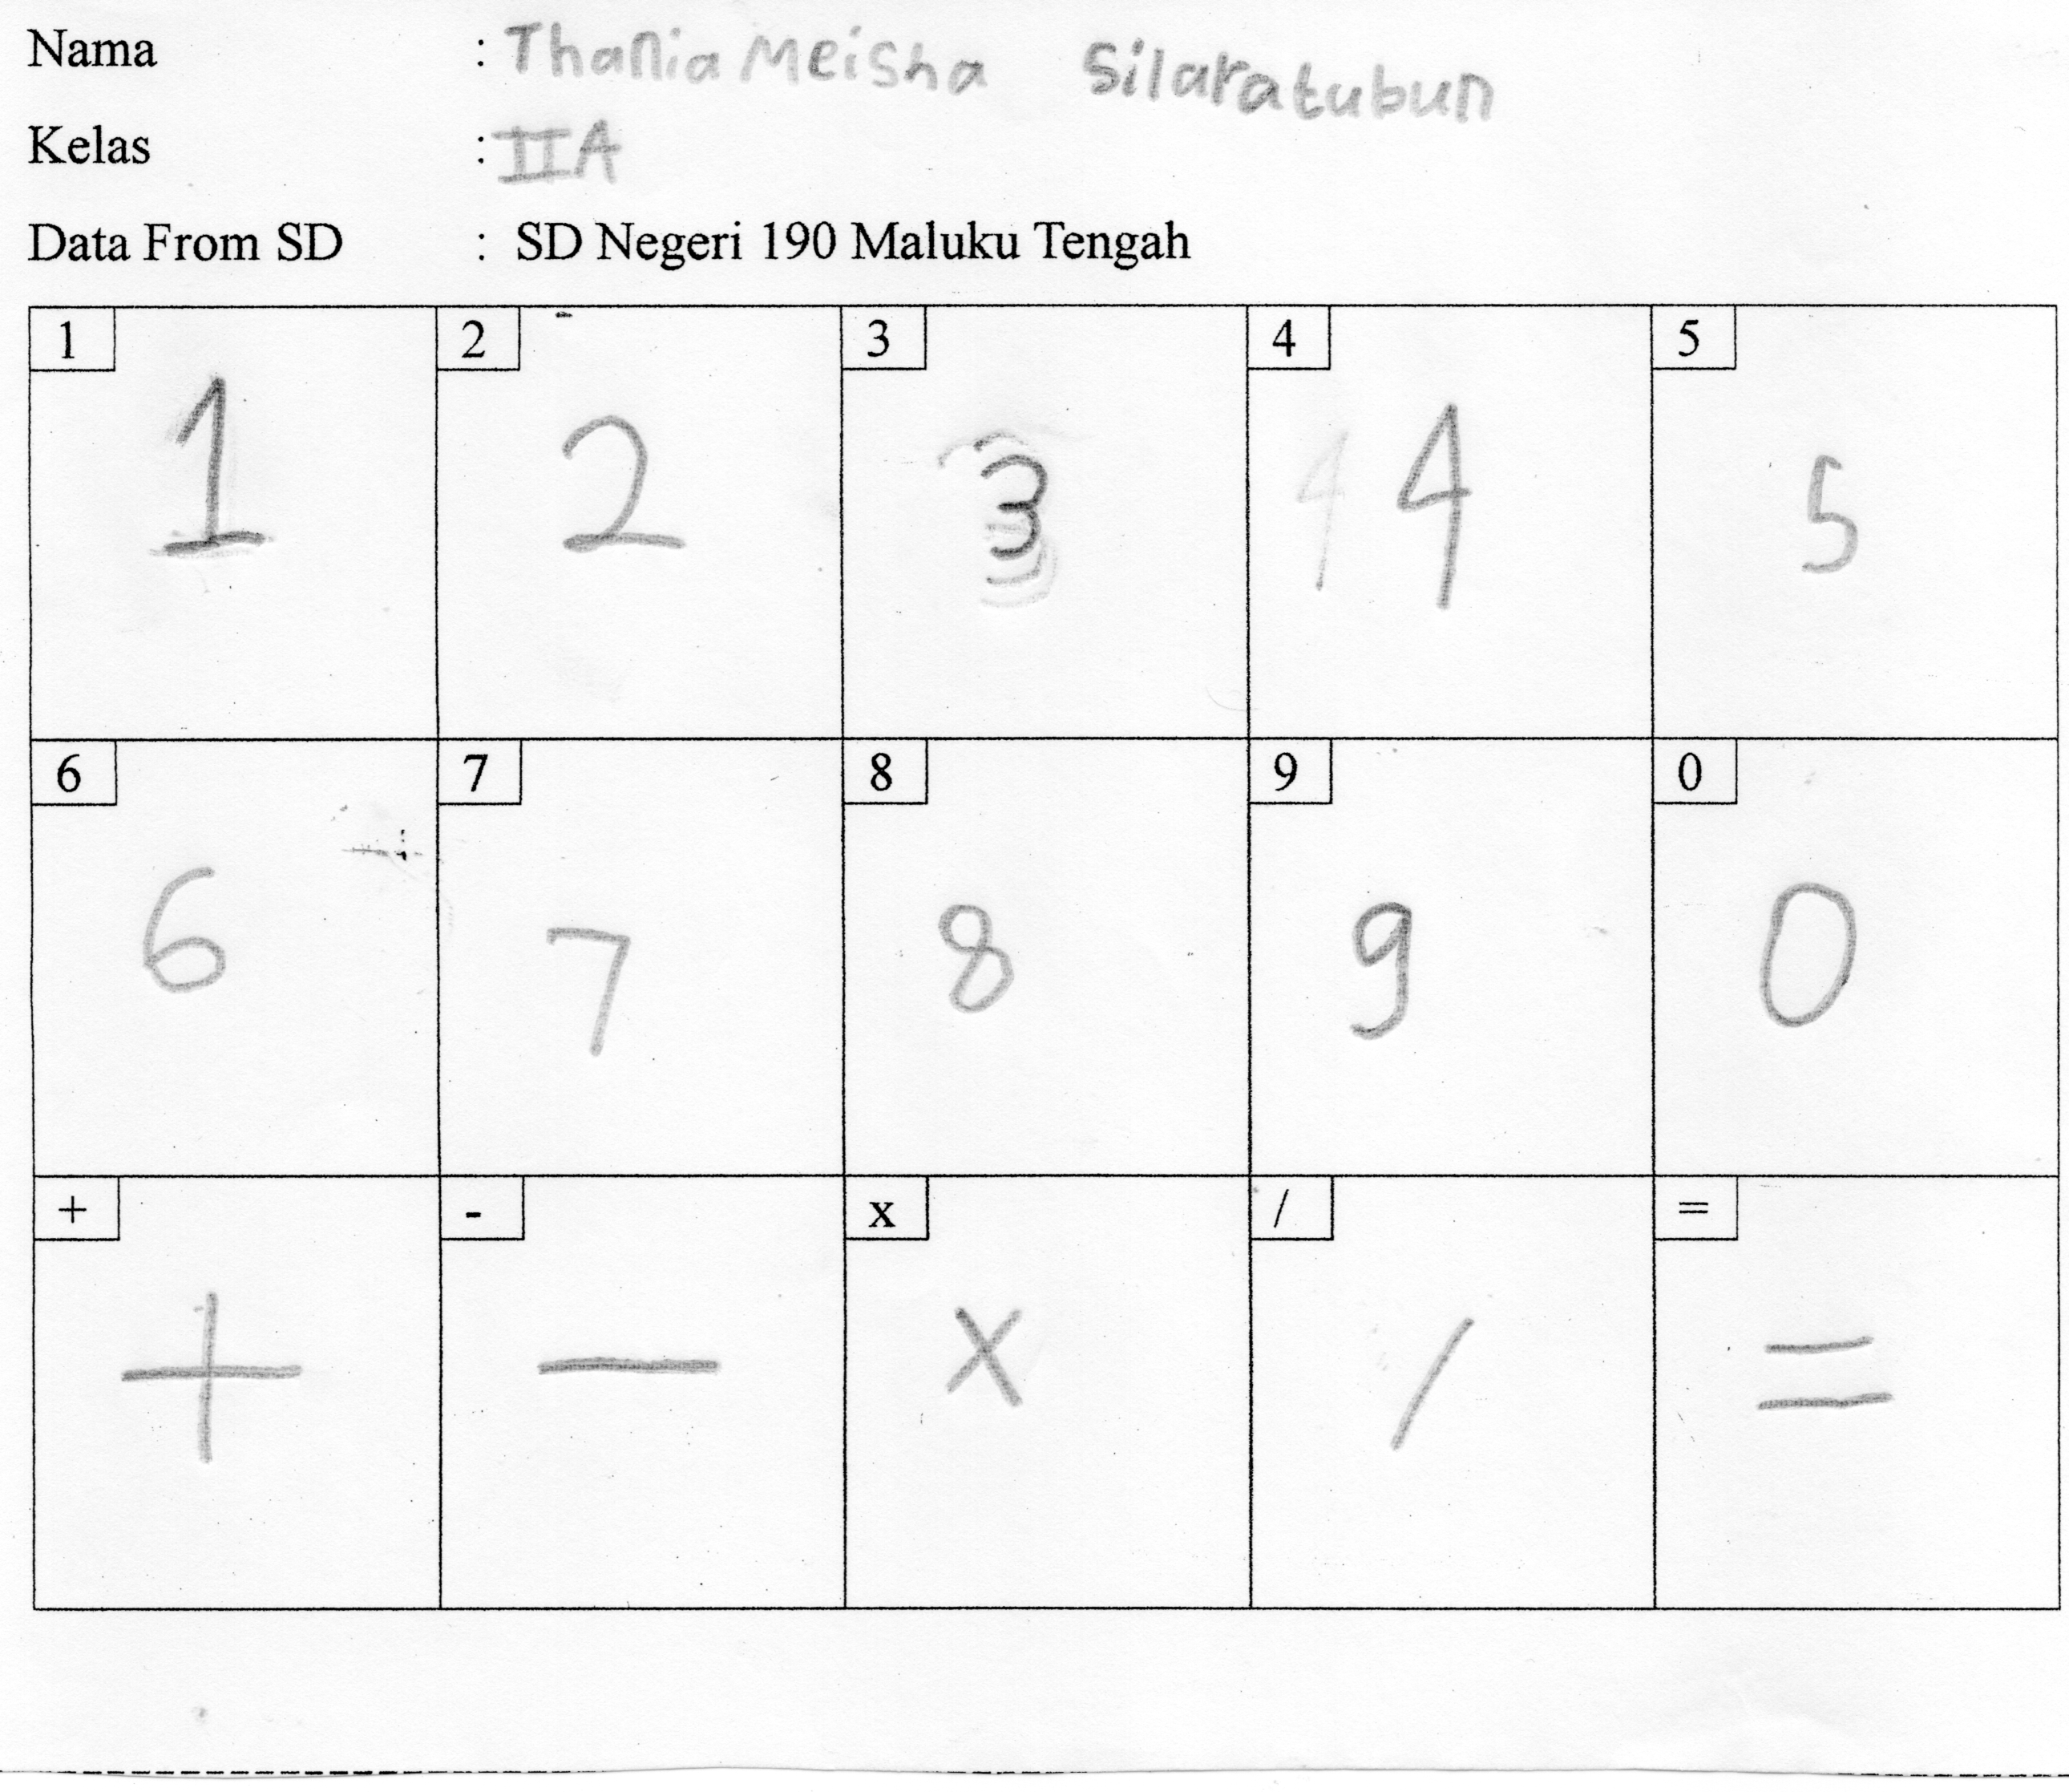 Nama : Thania Meisha Silaratubun
Kelas : IIA
Data From SD : SD Negeri 190 Maluku Tengah
1 2 3 4 5
1 2 3 4 4 5
6 7 8 9 0
6 7 8 9 0
+ - x / =
+ - x / =